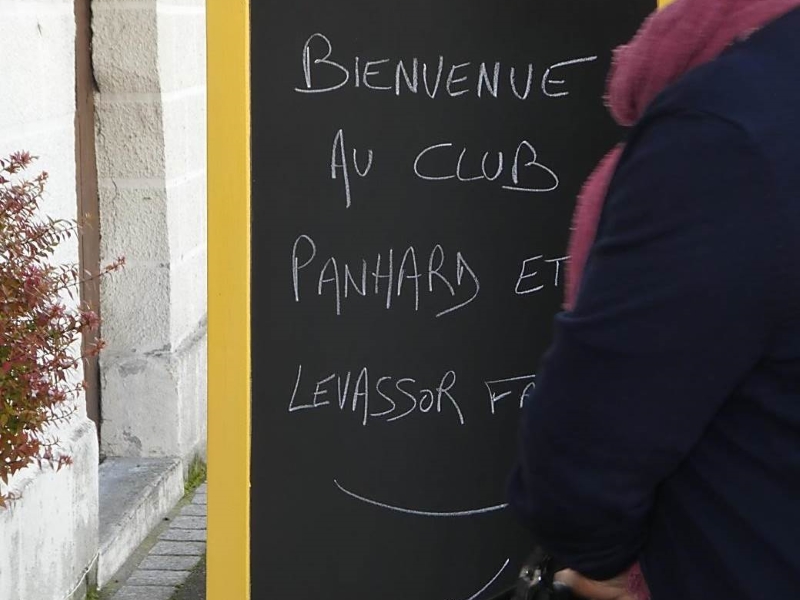 BIENVENUE
AU CLUB
PANHARD ET
LEVASSOR